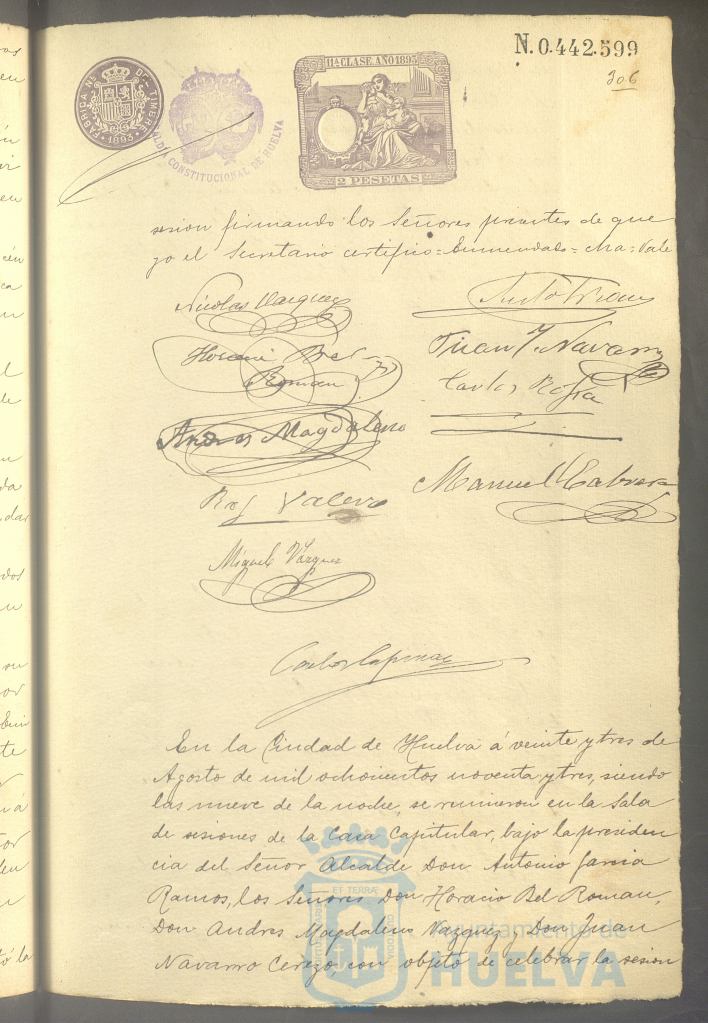 N.0.442.599
306
FABRICA NL. DEL TIMBRE
1893
ALCALDIA CONSTITUCIONAL DE HUELVA
11ª CLASE. AÑO 1893
2 PESETAS
sesion firmando los Señores presentes de que
yo el Secretario certifico = Enmendado = cha = Vale
Nicolas Vazquez
Justo
Horacio Bel
Roman
Juan J. Navarro
Carlos
Andres Magdaleno
Manuel Cabrera
Valero
Miguel Vázquez
Carlos
En la Ciudad de Huelva á veinte y tres de
Agosto de mil ochocientos noventa y tres, siendo
las nueve de la noche, se reunieron en la Sala
de sesiones de la Casa Capitular, bajo la presiden
cia del Señor Alcalde Don Antonio Garcia
Ramos, los Señores Don Horacio Bel Roman,
Don Andres Magdaleno Vazquez y Don Juan
Navarro Cerezo, con objeto de celebrar la sesion
ET TERRÆ
Ayuntamiento de
HUELVA